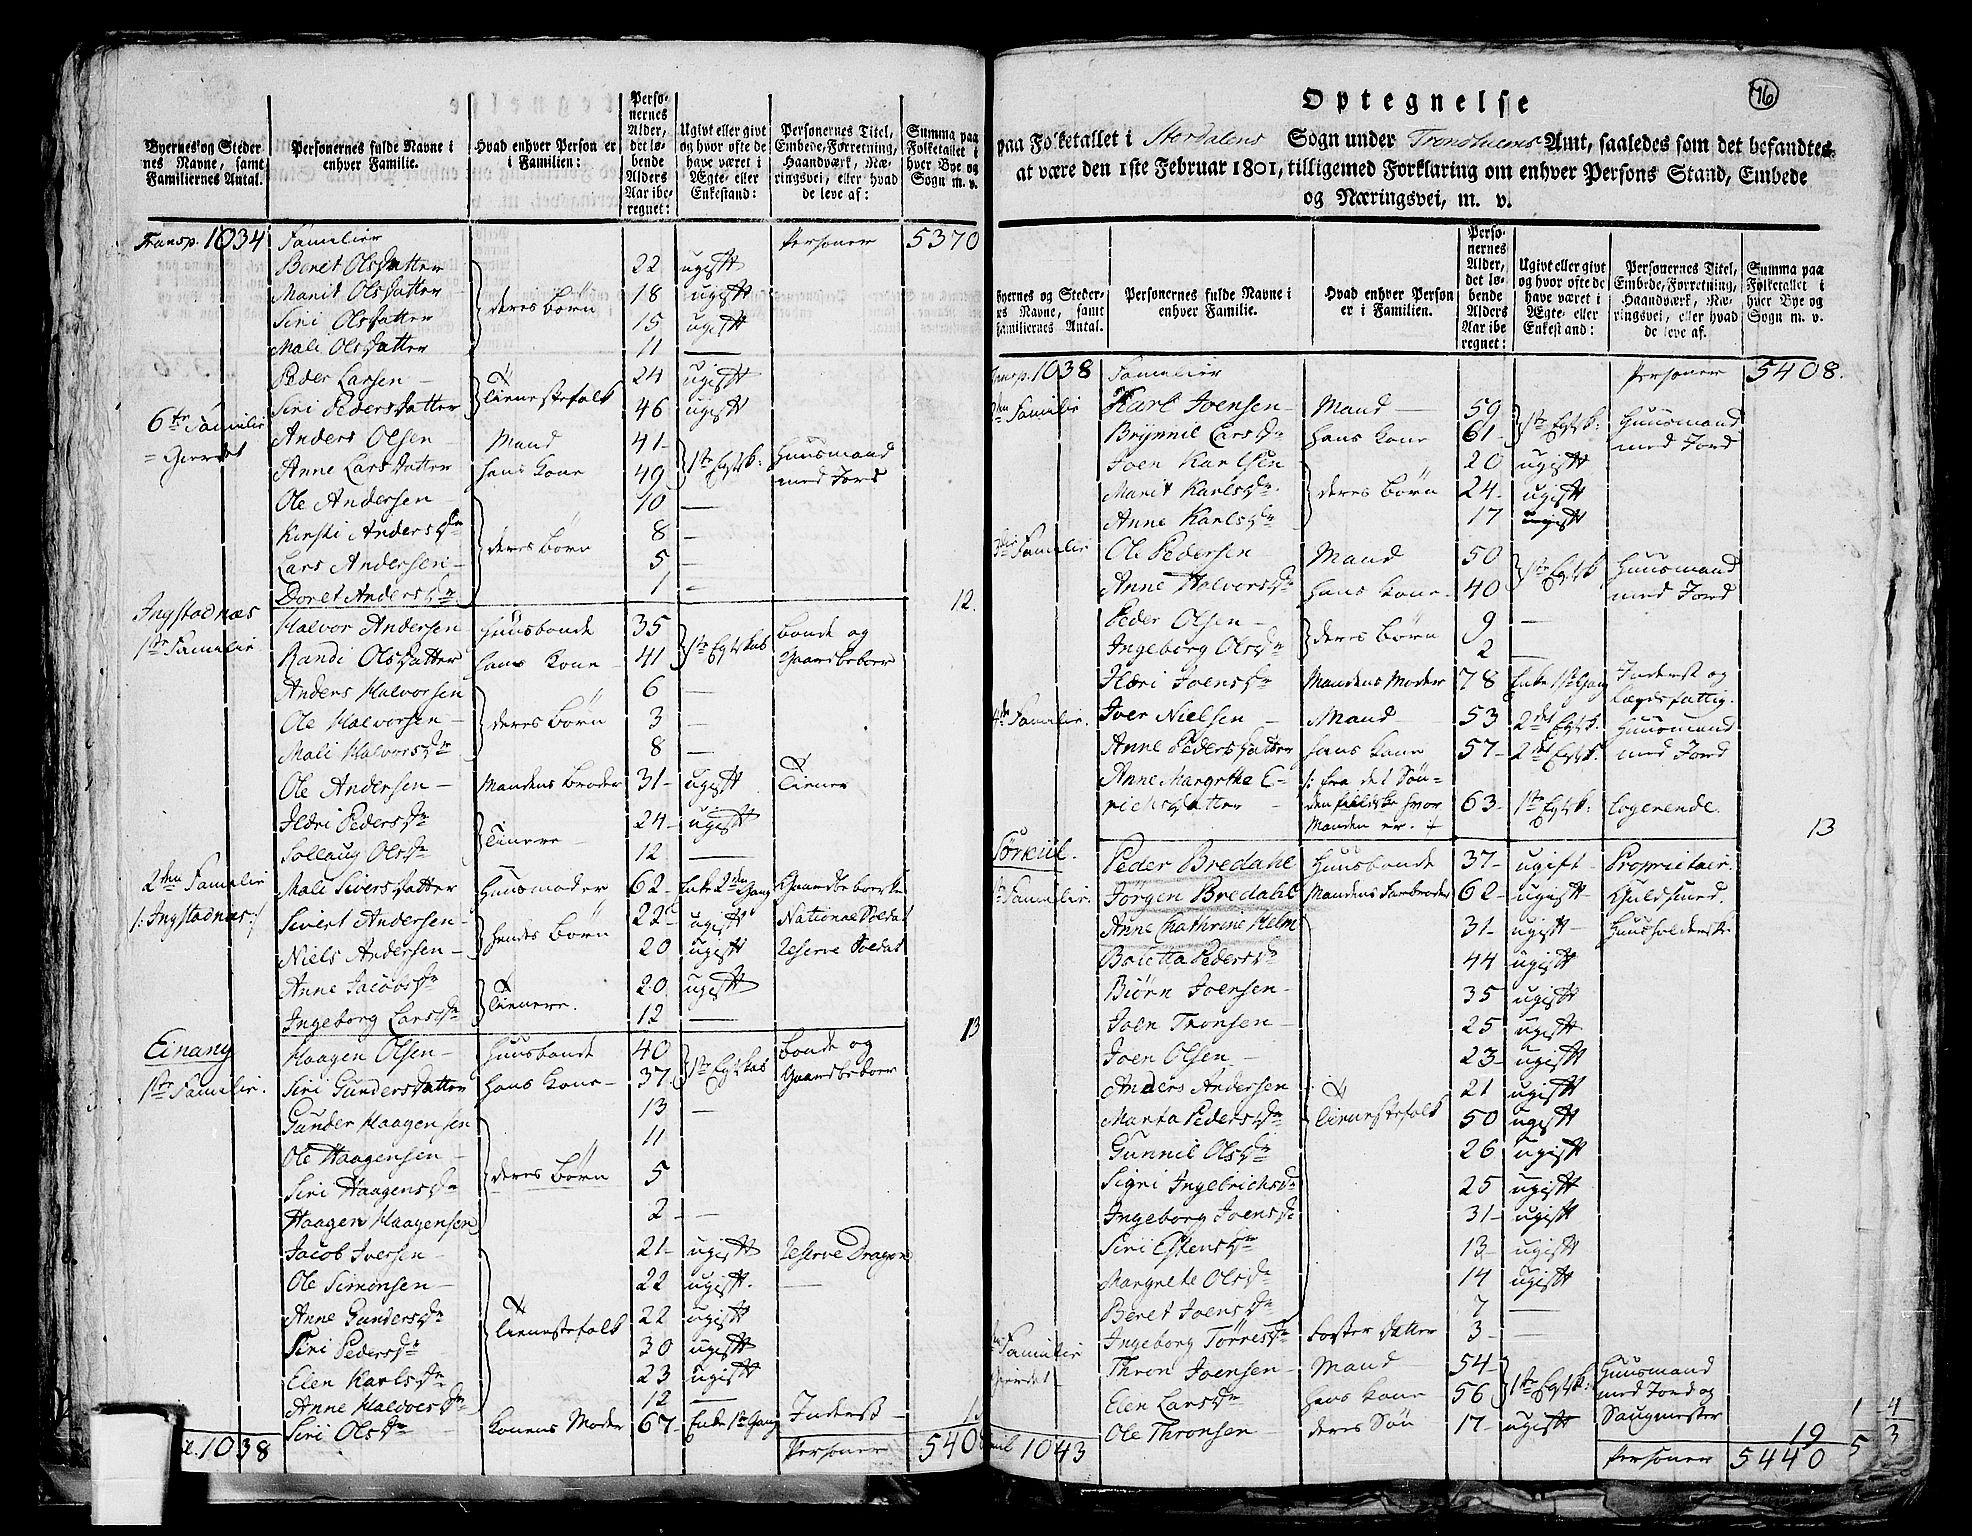 Byernes og Steder-
nes Navne, samt
Familiernes Antal.
Personernes fulde Navne i
enhver Familie.
Hvad enhver Person er
i Familien:
Perso-
nernes
Alder,
det lø-
bende
Alders
Aar ibe-
regnet:
Ugivt eller givt
og hvor ofte de
have været i
Ægte- eller
Enkestand:
Personernes Titel,
Embede, Forretning,
Haandværk, Næ-
ringsvei, eller hvad
de leve af:
Summa paa
Folketallet i
hver Bye og
Sogn m. v.
Transp. 1034 Familier Personer 5370
Beret Olsdatter 22 ugift
Marit Olsdatter deres Børn 18 ugift
Siri Olsdatter 15 ugift
Mali Olsdatter 11 —
Peder Larsen — Tienestefolk 24 ugift
Siri Pedersdatter 46 ugift
6te Familie Anders Olsen — Mand 41 1te Egtsk: Huusmand
= Gierdet Anne Larsdatter hans Kone 49 med Jord
Ole Andersen — 10 —
Kirsti Andersdr deres Børn 8 —
Lars Andersen — 5 —
Doret Andersdr 1 — 12.
Ingstadnæs Halvor Andersen Huusbonde 35 1te Egtskab Bonde og
1te Familie Randi Olsdatter hans Kone — 41 Gaardbeboer
Anders Halvorsen 6 —
Ole Halvorsen — deres Børn 3 —
Mali Halvorsdr 8 —
Ole Andersen — Mandens Broder 31 ugift Tiener
Ildri Pedersdr Tienere — 24 ugift
Sollaug Olsdr 12 —
2den Familie Mali Siversdatter Huusmoder 62 Enke 2den Gang Gaardbeboerske
/: Ingstadnæs :/ Sivert Andersen — hendes Børn 22 ugift National Soldat
Niels Andersen — 20 ugift Reserve Soldat
Anne Jacobsdr Tienere. 20 ugift
Ingeborg Larsdr 12 — 13
Einang Haagen Olsen — Huusbonde 40 1te Egtskab Bonde og
1te Familie. Siri Gundersdatter hans Kone — 37 Gaardbeboer
Gunder Haagensen 13 —
Ole Haagensen — 11
Siri Haagensdr deres Børn 5
Haagen Haagensen 2 — —
Jacob Iversen — 21 ugift Reserve Dragon
Ole Simonsen — 22 ugift. —
Anne Gundersdr Tienestefolk 22 ugift
Siri Pedersdr 30 ugift
Elen Karlsdr 23 ugift
Anne Halvorsdr 12 —
Siri Olsdr Konens Moder 67 Enke 1te Gang Inderst —
1038 Personer 540
76
Optegnelse
paa Folketallet i Stordalens Sogn under Trondhiems Amt, saaledes som det befandtes
at være den 1ste Februar 1801, tilligemed Forklaring om enhver Persons Stand, Embede
og Næringsvei, m. v.
Byernes og Steder-
es Navne, samt
Familiernes Antal.
Personernes fulde Navne i
enhver Familie.
Hvad enhver Person
er i Familien.
Perso-
nernes
Alder,
det lø-
bende
Alders
Aar ibe-
regnet:
Ugivt eller givt
og hvor ofte de
have været i
Ægte- eller
Enkestand:
Personernes Titel,
Embede, Forretning,
Haandværk, Næ-
ringsvei, eller hvad
de leve af.
Summa paa
Folketallet i
hver Bye og
Sogn m. v.
Transp. 1038 Familier Personer 5408.
2den Familie Karl Joensen — Mand — 59 1te Egtsk: Huusmand
Brynnil Larsdr hans Kone 61 med Jord
Joen Karlsen 20 ugift
Marit Karlsdr deres Børn 24 ugift
Anne Karlsdr 17 ugift
3die Familie Ole Pedersen — Mand 50 1te Egtsk Huusmand
Anne Halvorsdr hans Kone — 40 med Jord
Peder Olsen — deres Børn 9 —
Ingeborg Olsdr 2 —
Ildri Joensdr Mandens Moder 78 Enke 1te Gang Inderst og
Lægdsfattig.
4de Familie. Iver Nielsen — Mand — 53 2det Egtsk. Huusmand
Anne Pedersdatter hans Kone 57 2det Egtsk. med Jord
Anne Margrethe E- /: fra det Søn-
richsdatter — denfieldske hvor 63 1te Egtsk: Logerende.
Manden er. :/ 13
Peder Bredahl Huusbonde 37 ugift — Proprietair.
Familie. Jørgen Bredahl Mandens Farbroder 62 ugift Guldsmed.
Anne Chathrine Helm 31 ugift — Huusholderske
Boletta Pedersdr 44 ugift
Biørn Joensen — 35 ugift
Joen Tronsen — 25 ugift
Joen Olsen — 23 ugift
Anders Andersen 21 ugift
Marta Pedersdr Tienestefolk 50 ugift
Gunnil Olsdr 26 ugift
Sigri Ingebrichsdr 25 ugift
Ingeborg Joensdr 31 ugift
Siri Estensdr 13 ugift
Margrete Olsdr 14 ugift
Beret Joensdr 7 —
Ingeborg Tørresdr Foster datter 3 —
Familie Thron Joensen — Mand 54 1te Egtsk: Huusmand
Gierdet Elen Larsdr hans Kone 56 med Jord og
Ole Thronsen — deres Søn 17 ugift Saugmester 19
1043 Personer 5440
1 4
5 3